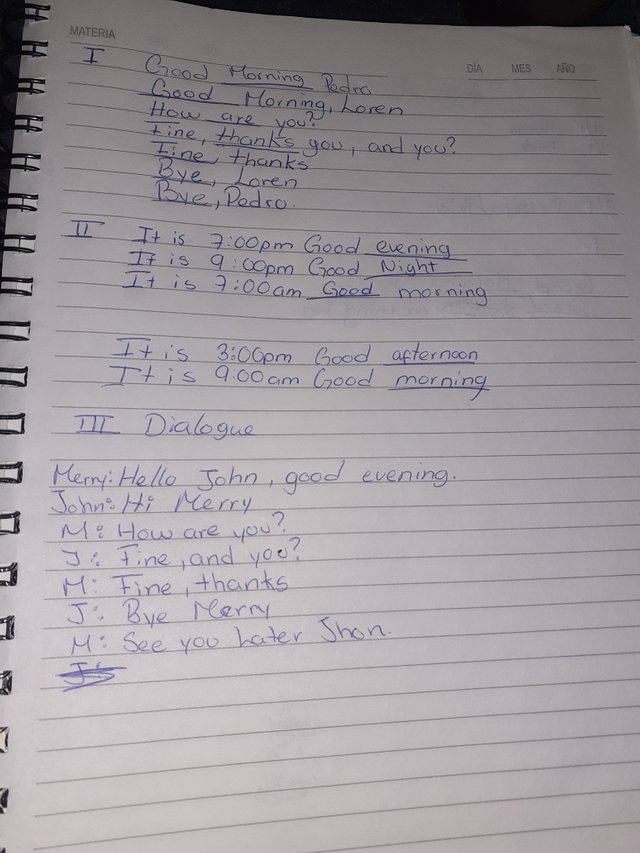 MATERIA
DÍA MES AÑO
I Good Morning Pedro
Good Morning, Loren
How are you?
Fine, thanks you, and you?
Fine, thanks
Bye, Loren
Bye, Pedro.
II It is 7:00pm Good evening
It is 9:00pm Good Night
It is 7:00am Good morning
It is 3:00pm Good afternoon
It is 9:00am Good morning
III Dialogue
Merry: Hello John, good evening.
John: Hi Merry
M: How are you?
J: Fine, and you?
M: Fine, thanks
J: Bye Merry
M: See you Later Jhon.